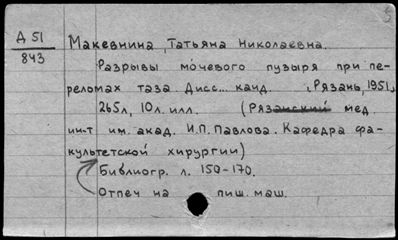 Д 51
843
Макевнина, Татьяна Николаевна.
Разрывы мочевого пузыря при пе-
реломах таза. Дисс... канд. Рязань, 1951,
265л, 10л. илл. (Рязанский мед
ин-т им. акад. И.П. Павлова. Кафедра фа-
культетской хирургии)
Библиогр. л. 150-170.
Отпеч на пиш. маш.